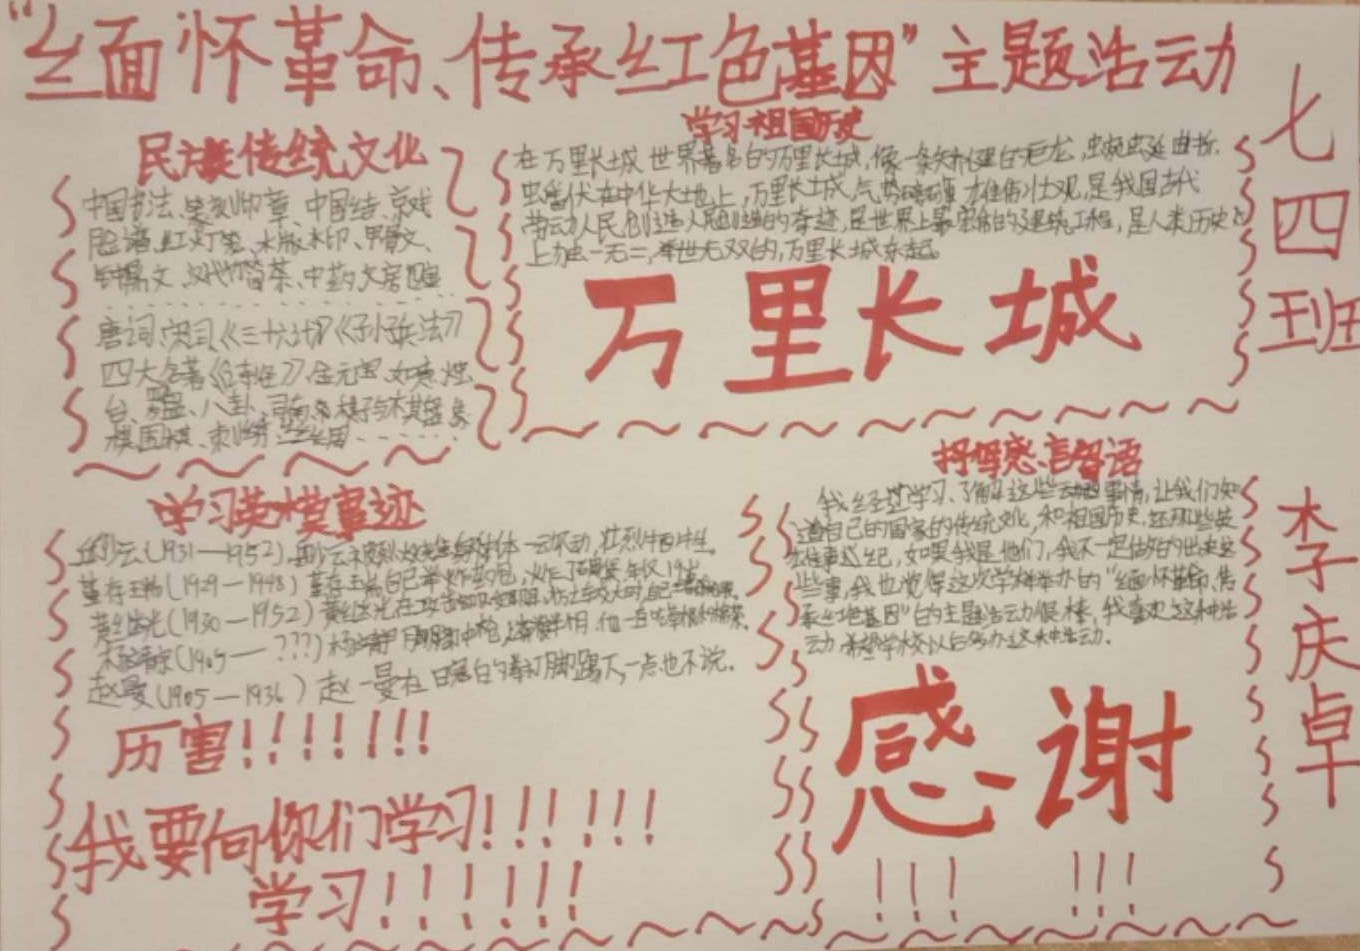 “缅怀革命、传承红色基因”主题活动
七四班
李庆卓
民族传统文化
中国书法、篆刻印章、中国结、京戏
脸谱、红灯笼、木版水印、甲骨文、
钟鼎文、汉代竹简茶、中药、文房四宝
唐词、宋词《三十六计》《孙子兵法》
四大名著《诗经》、金元宝、如意、烛
台、罗盘、八卦、司南、棋子与木其盛象
棋围棋、刺绣、丝
学习祖国历史
在万里长城世界著名的万里长城,像一条矫健的巨龙,蜿蜒曲折.
在中华大地上,万里长城,气势磅礴,雄伟壮观,是我国古代
劳动人民创造人民创造的奇迹,是世界上最宏伟的建筑工程,是人类历史
上独一无二,举世无双的,万里长城东起。
万里长城
学习英模事迹
邱少云(1931—1952),邱少云被烈火身体一动不动,壮烈牺牲。
董存瑞(1929—1948)董存瑞自己举炸药包,炸了碉堡年仅19岁
黄继光(1930—1952)黄继光在
杨靖宇(1905—???)杨靖宇
赵一曼(1905—1936)赵一曼在日寇的一点也不说.
历害!!!!!!!
我要向你们学习!!!!!!
学习!!!!!!
抒写感言寄语
我经过学习、了解这些事情,让我们知
道自己的国家的传统文化,和祖国历史,还有那些英
雄事迹纪,如果我是他们,我不一定做的出来这
些事,我也觉得这次学校举办的“缅怀革命、传
承红色基因”的主题活动很棒,我喜欢这种活
动,希望学校以后多办这种活动.
感谢
!!! !!!